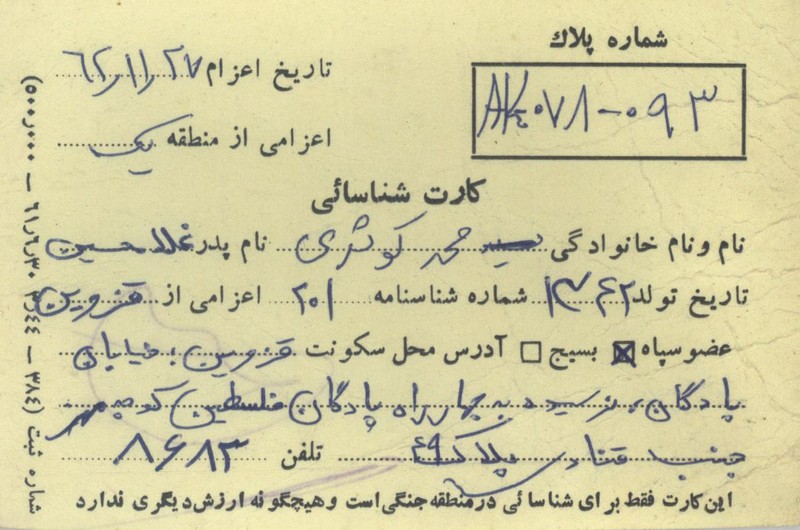 شماره پلاك
AK۴۰۷۸-۰۹۳
تاریخ اعزام ۶۲ر۱۱ر۲۷
اعزامی از منطقه یک
کارت شناسائی
نام و نام خانوادگی سید محمد کوثری نام پدر غلامحسین
تاریخ تولد ۱۳۴۲ شماره شناسنامه ۲۰۱ اعزامی از قزوین
عضو سپاه بسیج آدرس محل سکونت قزوین، خیابان
پادگان، نرسیده به چهارراه پادگان فلسطین کوچه مهر
جنب قنادی پلاک ۴۹ تلفن ۸۶۸۳
این کارت فقط برای شناسائی در منطقه جنگی است و هیچگونه ارزش دیگری ندارد
شماره ثبت (۳۸۴ — ۴۴ر۳ ۶۱ر۶ر۳۰ — ۵۰۰ر۰۰۰)